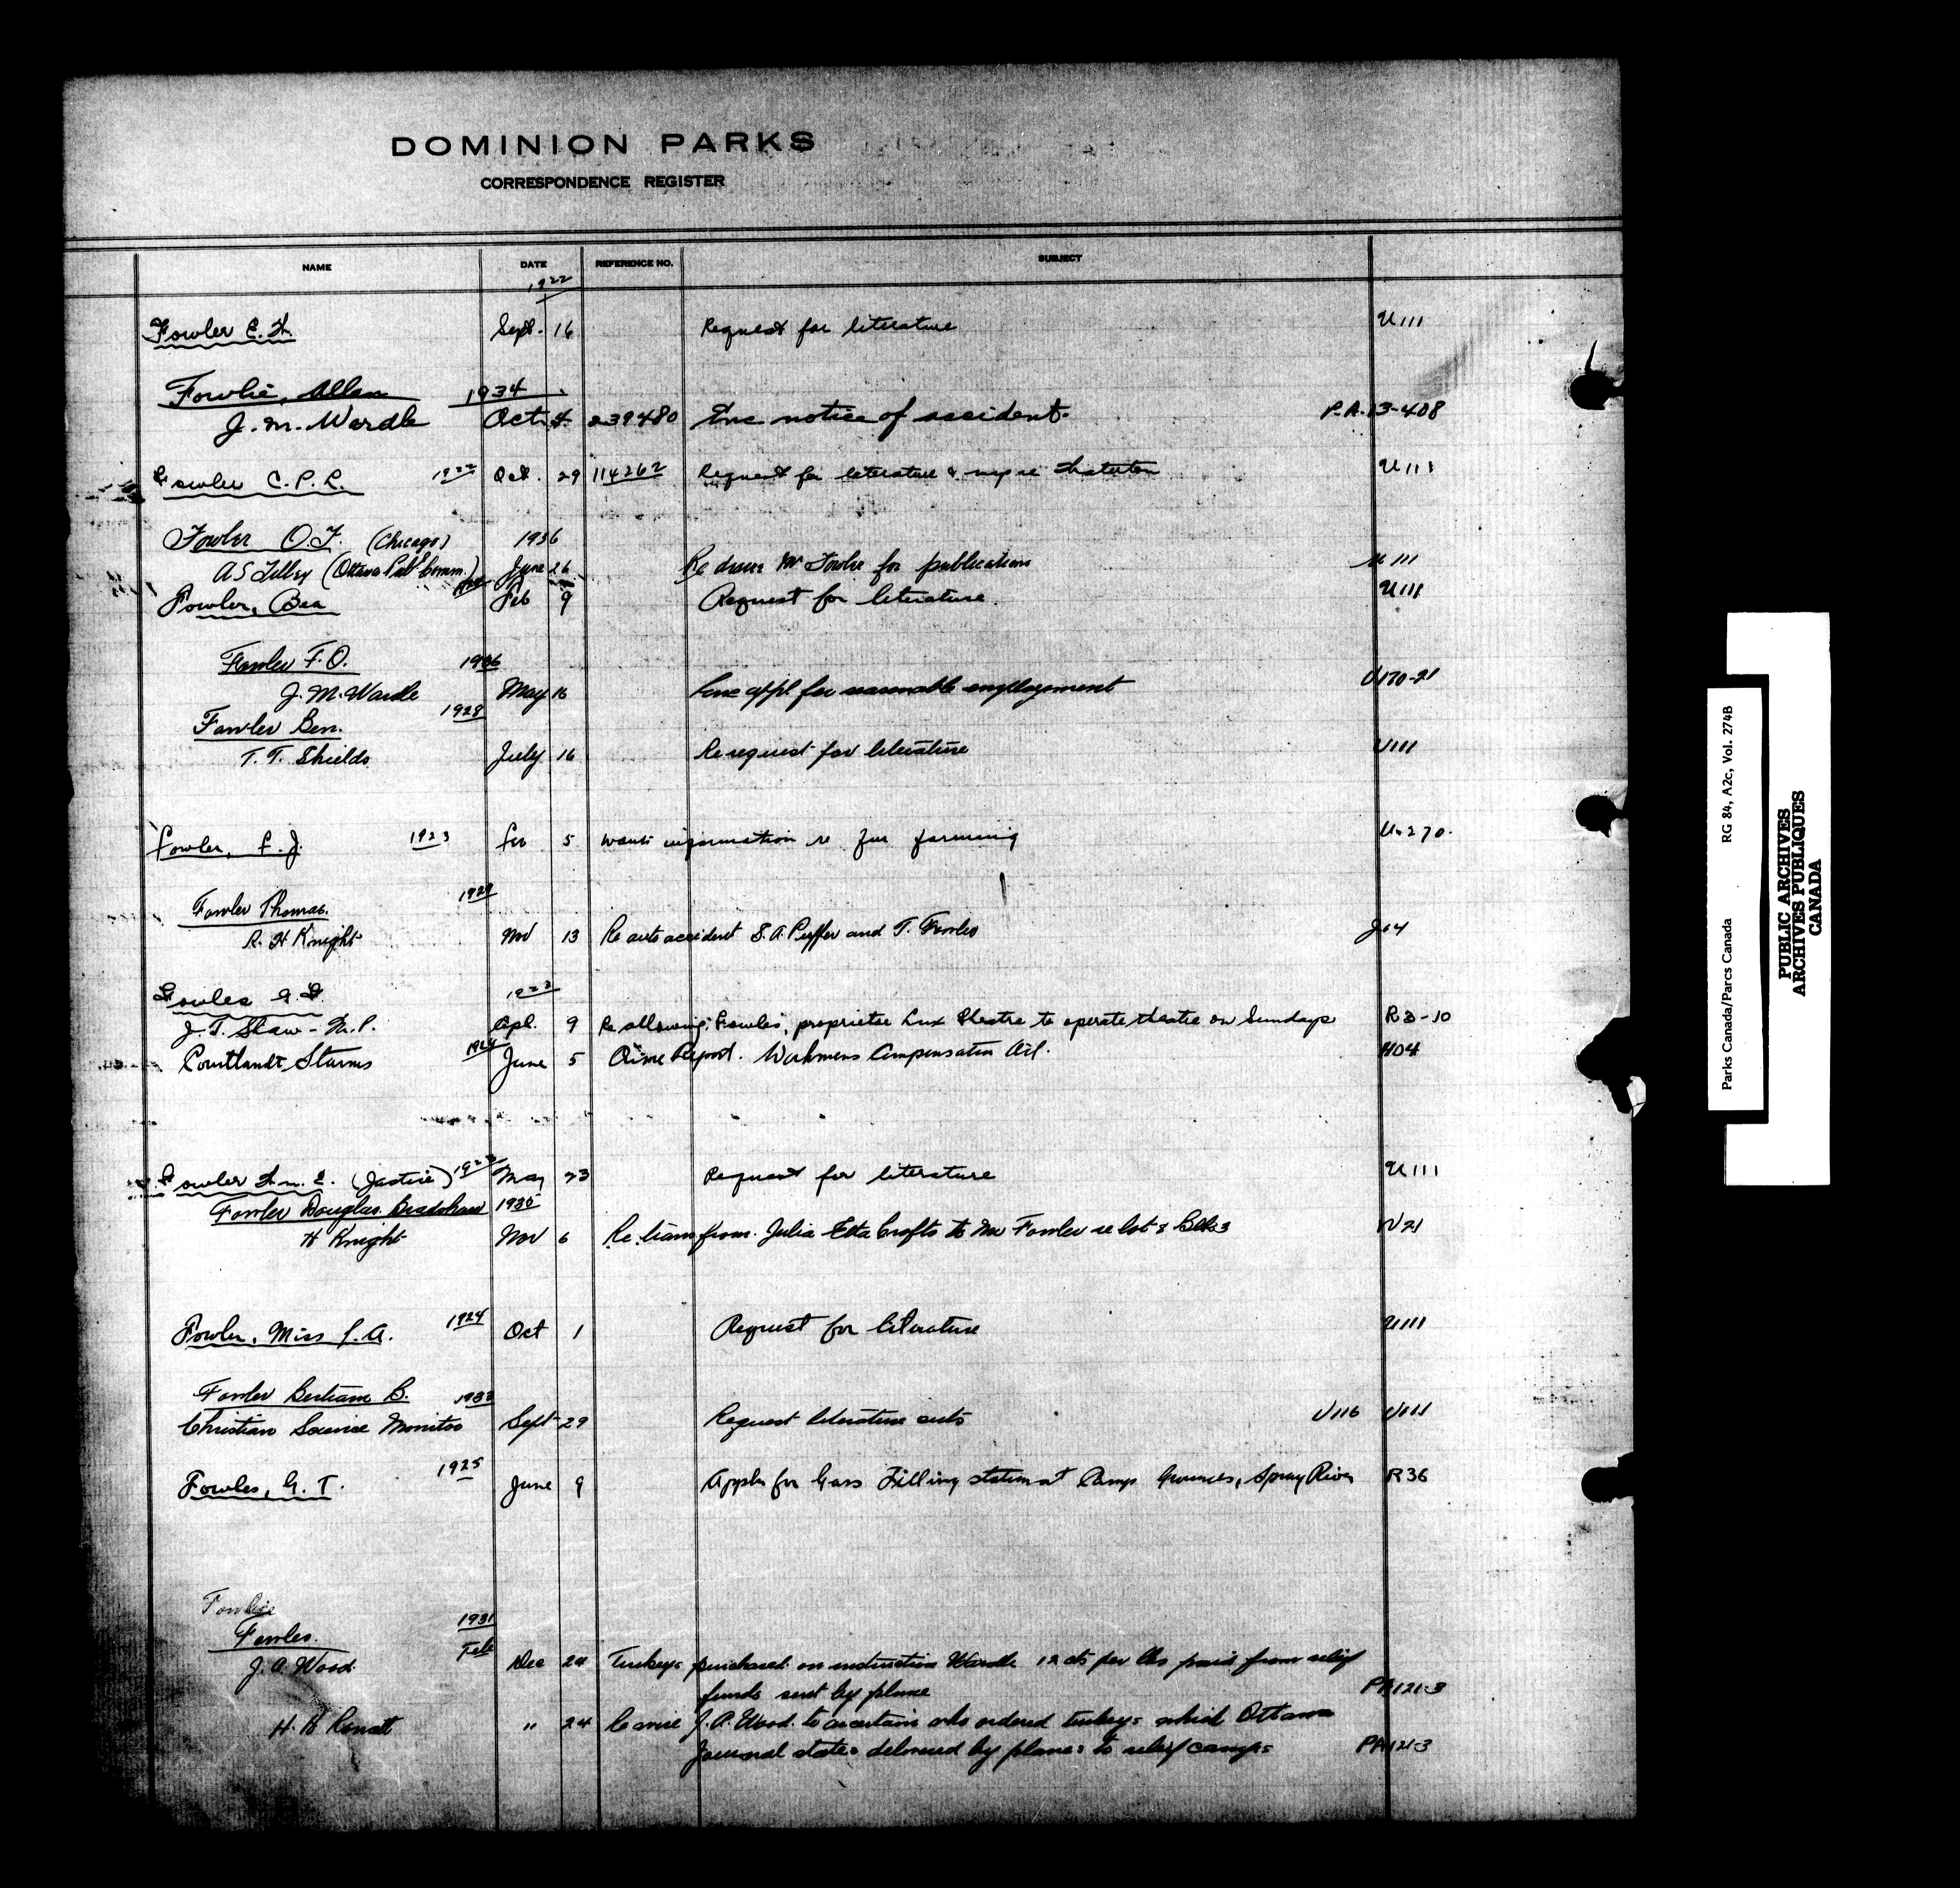 DOMINION PARKS
CORRESPONDENCE REGISTER
NAME DATE REFERENCE NO. SUBJECT
1922
Fowler E. H. Sept. 16 Request for literature U111
Fowlie, Allan 1934
J. M. Wardle Oct. 4 239480 Enc notice of accident. P.A. 13-408
Fowler C. P. L. 1922 Oct. 29 114262 Request for literature & map re U111
Fowler O. F. (Chicago) 1936
A S Tilley (Ottawa Pub Comm.) June 26 Re Mr Fowler for publication U 111
Fowler, Bea Feb 9 Request for literature. U111
Fowler F. O. 1936
J. M. Wardle May 16 Enc appl for seasonable employment U170-21
Fowler Ben. 1928
T. T. Shields July 16 Re request for literature U111
Fowler, F. J. 1923 5 wants information re fur farming U-270.
Fowler Thomas. 1929
R. H Knight Nov 13 Re auto accident S. A. Puffer and T. Fowles J14
Fowles G. T. 1923
J. T. Shaw - M. P. Apl. 9 Re allowing Fowles, proprietor Lux Theatre to operate theatre on Sundays R3-10
Courtlandt Starnes June 5 Crime Report. Workmens Compensation Act. H04
Fowler (Jastive) 1923 May 23 Request for literature U111
Fowler Douglas Bradshaw 1935
H Knight Nov 6 Re trans from. Julia Etta Crofts to Mr Fowler re lot 8 Blk 3 N21
Fowler, Miss L. A. 1924 Oct 1 Request for literature U111
Fowler Bertram B. 1933
Christian Science Monitor Sept 29 Request literature cuts U116 U111
Fowles, G. T. 1925 June 9 Appln for Gass Filling station at Camp Grounds, Spray River R36
Fowlie
Fowles. 1931
Feb
J. A. Wood Dec 24 Turkeys purchased on instruction Wardle 12 cts per lbs paid from relief
funds sent by plane PA121-3
H. B " 24 J. A. Wood to ascertain who ordered turkeys which Ottawa
Journal states delivered by planes to relief camps PA121-3
Parks Canada/Parcs Canada RG 84, A2c, Vol. 274B
PUBLIC ARCHIVES
ARCHIVES PUBLIQUES
CANADA